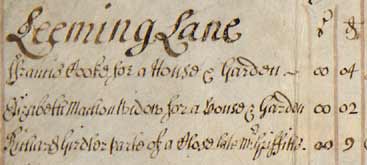 Leeming Lane
Francis Cooke for a House & Garden 00 04
Elizabeth Widow for a House & Garden 00 02
Richard for parte of a Close late Mr Griffiths 00 9